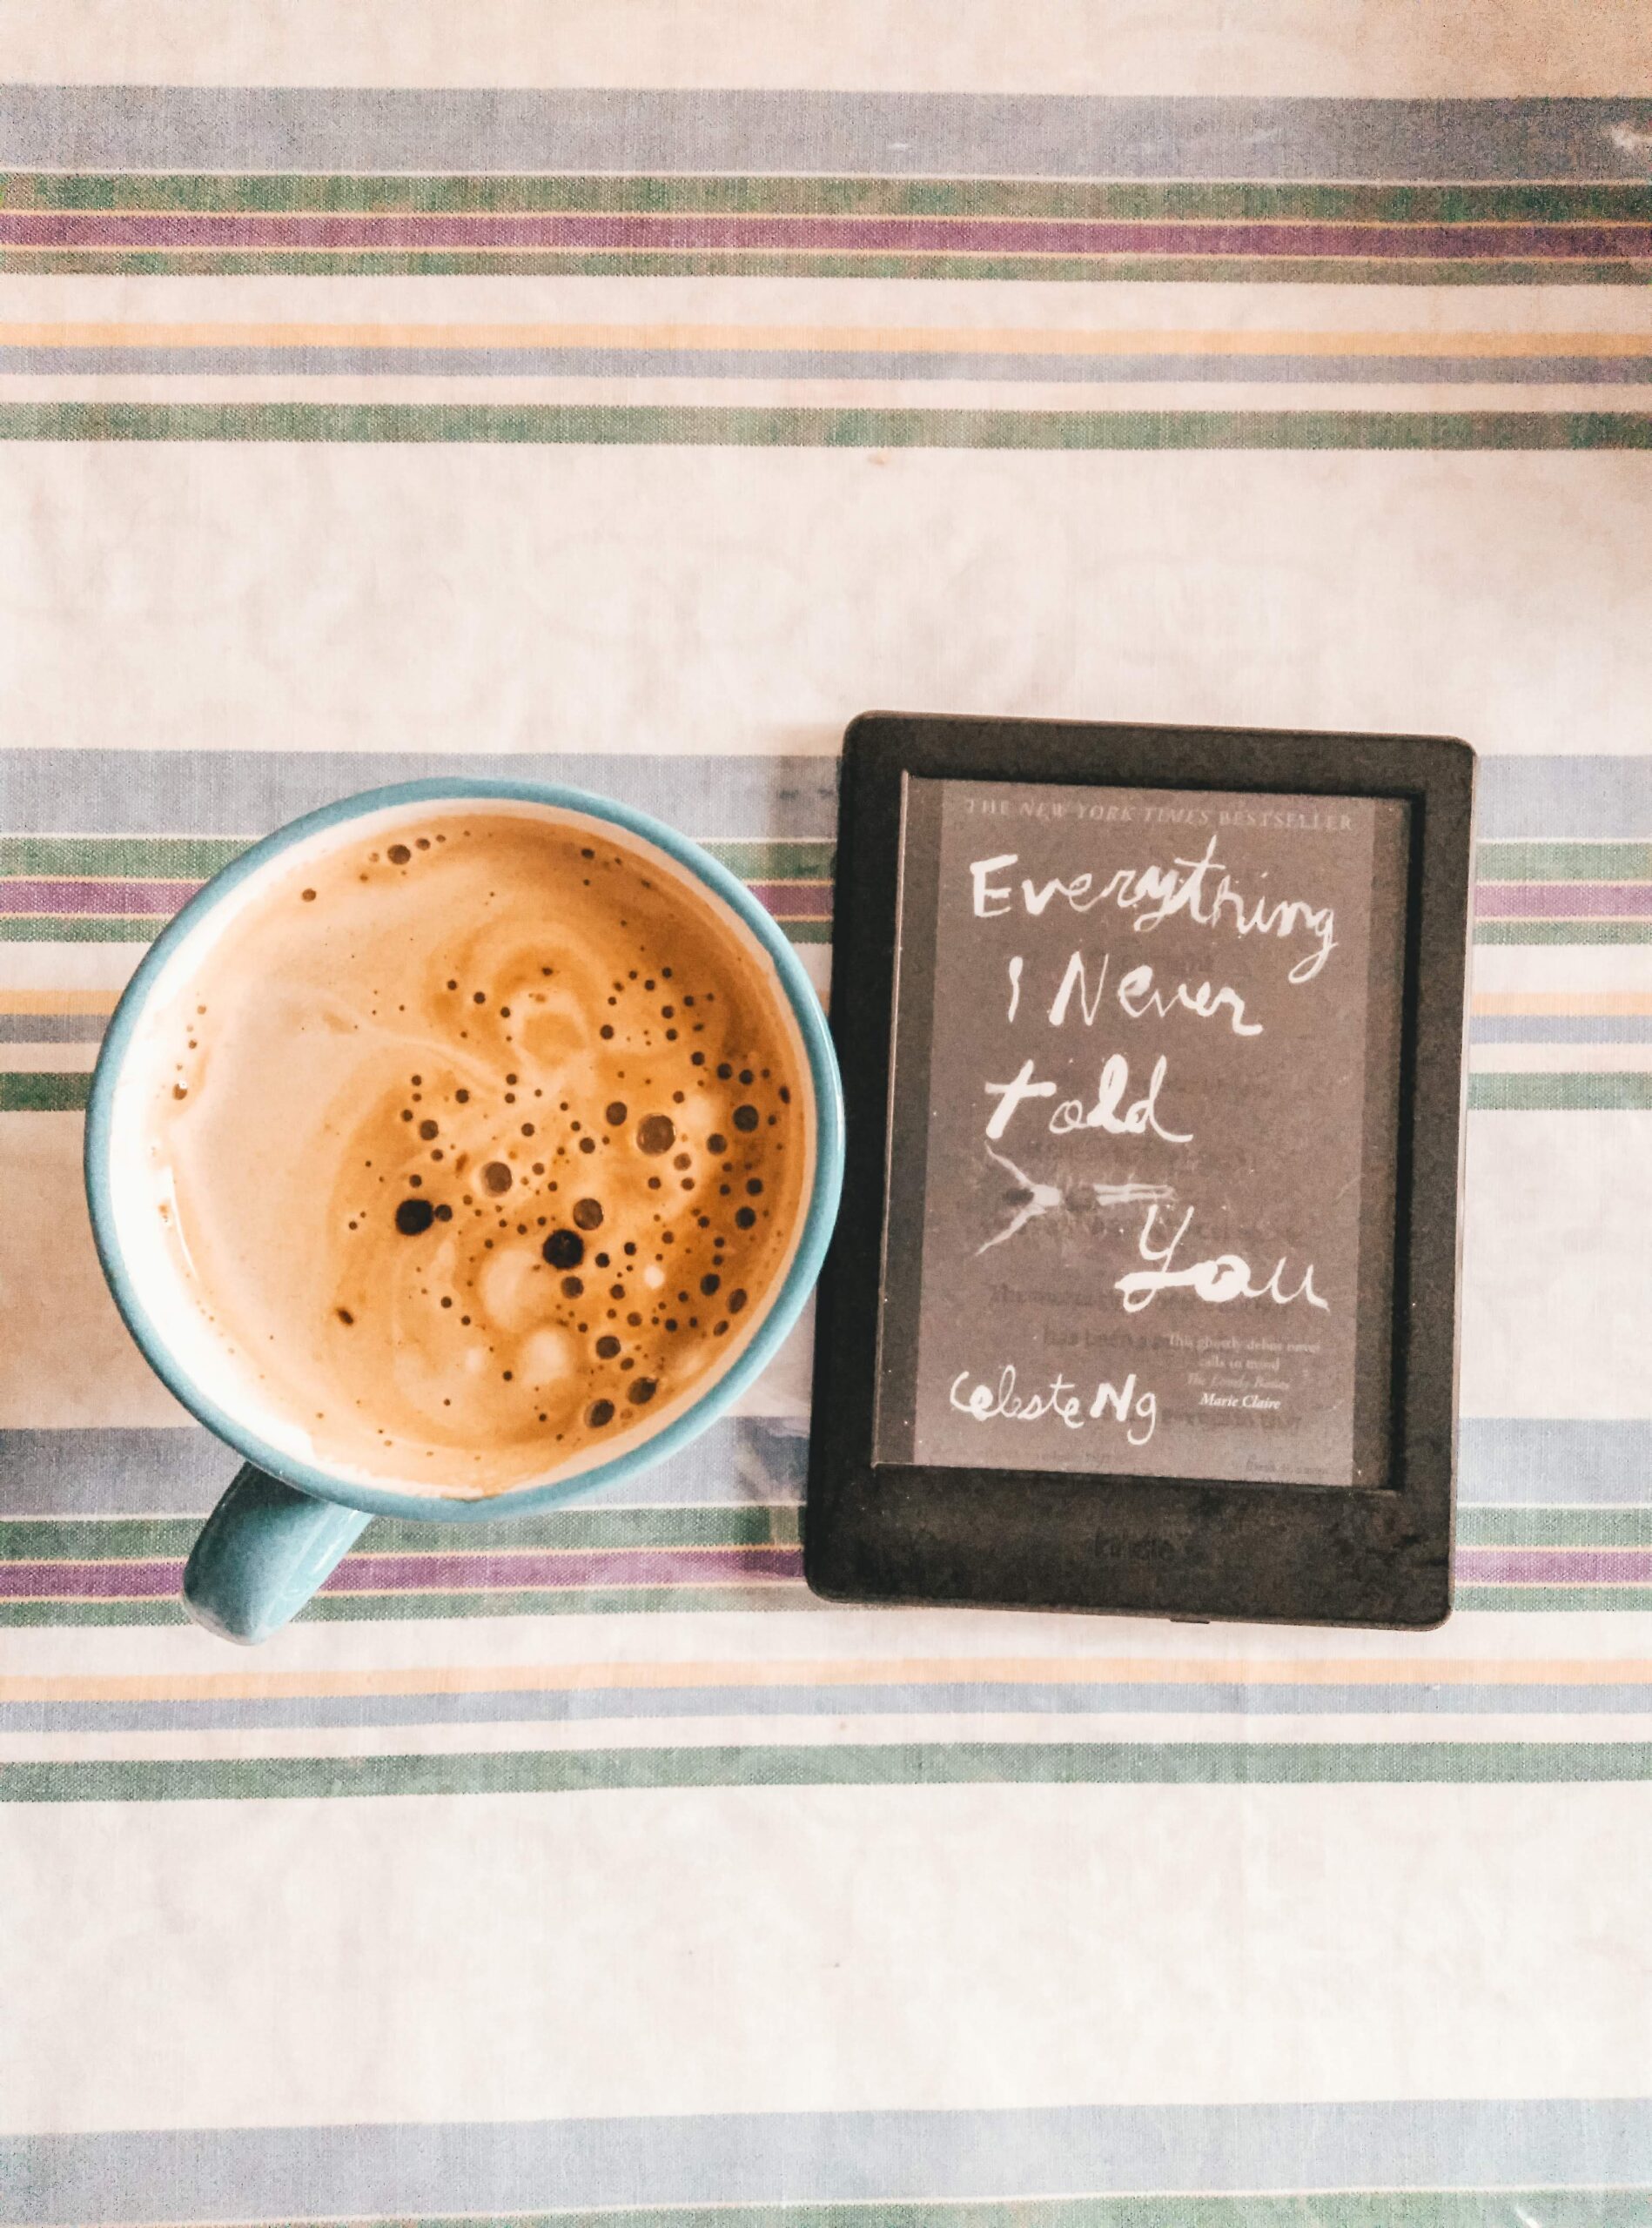 THE NEW YORK TIMES BESTSELLER
Everything
I Never
told
You
This ghostly debut novel
calls to mind
The Lovely Bones
Marie Claire
Celeste Ng
kindle